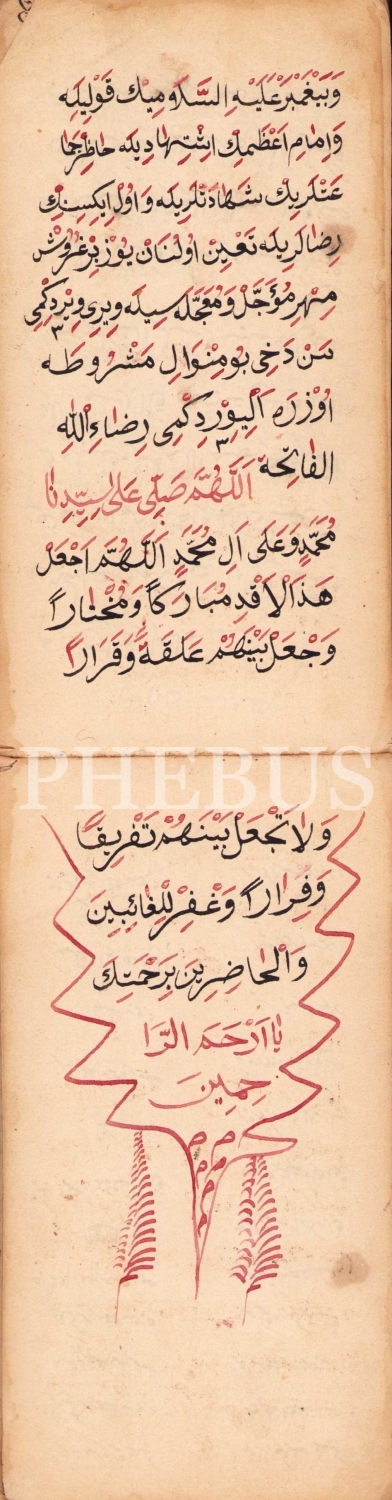 وَپَيْغَمْبَرْ عَلَيْهِ السَّلَامِيكْ قَوْلِيلَه
وَاِمَامِ اَعْظَمِكْ اِجْتِهَادِيلَه حَاظِرْ جَمَا
عَتْلَرِيكْ شَهَادَتْلَرِيلَه وَ اول اِيكِسِنِكْ
رِضَالَرِيلَه تَعْيِنْ اولُنَانْ يُوزْ بِرْ غُرُوشْ
مِهْرِ مُؤَجَّلْ وَمُعَجَّلَه سِيلَه وِيرِى وِيرْدِكْمِى
٣
سَنْ دَخِى بُو مِنْوَالِ مَشْرُوطَه
اوُزَرَه اَلِيوِرْدِكْمِى رِضَاءِ اللّٰهِ
٣
الفَاتِحَة اَللّٰهُمَّ صَلِّى عَلَى سَيِّدِنَا
مُحَمَّدٍ وَعَلَى اَلِ مُحَمَّدٍ اَللّٰهُمَّ اَجْعَلْ
هَذَا لْاَقْدِ مُبَارَكاً وَمُخْتَاراً
وَجْعَلْ بَيْنَهُمْ عَلَقَةً وَقَرَاراً
PHEBUS
وَلَا تَجْعَلْ بَيْنَهُمْ تَفْرِيقًا
وَفِرَاراً وَغْفِرْ لِلْغَائِبِينَ
وَالْحَاضِرِينَ بِرَحْمَتِكَ
يَا اَرْحَمَ الرَّا
حِمِينَ